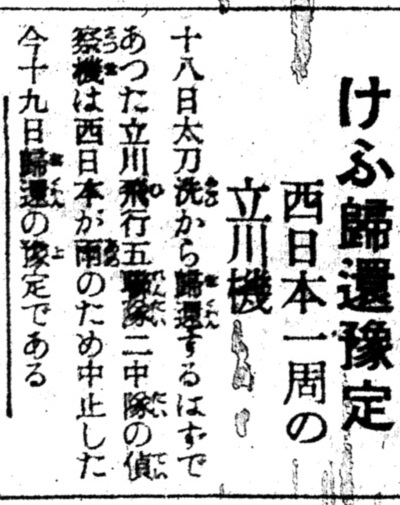 けふ歸還豫定
西日本一周の
立川機
十八日太刀洗から歸還するはずで
あつた立川飛行五聯隊二中隊の偵
察機は西日本が雨のため中止した
今十九日歸還の豫定である